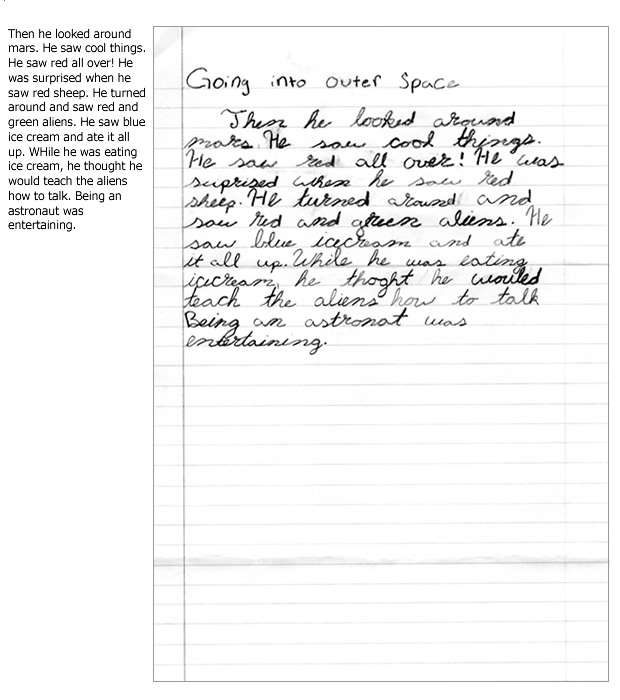 Then he looked around
mars. He saw cool things.
He saw red all over! He
was surprised when he
saw red sheep. He turned
around and saw red and
green aliens. He saw blue
ice cream and ate it all
up. WHile he was eating
ice cream, he thought he
would teach the aliens
how to talk. Being an
astronaut was
entertaining.
Going into outer Space
Then he looked around
mars. He saw cool things.
He saw red all over! He was
suprised when he saw red
sheep. He turned around and
saw red and green aliens. He
saw blue icecream and ate
it all up. While he was eating
icicream, he thoght he wouled
teach the aliens how to talk
Being an astronat was
entertaining.